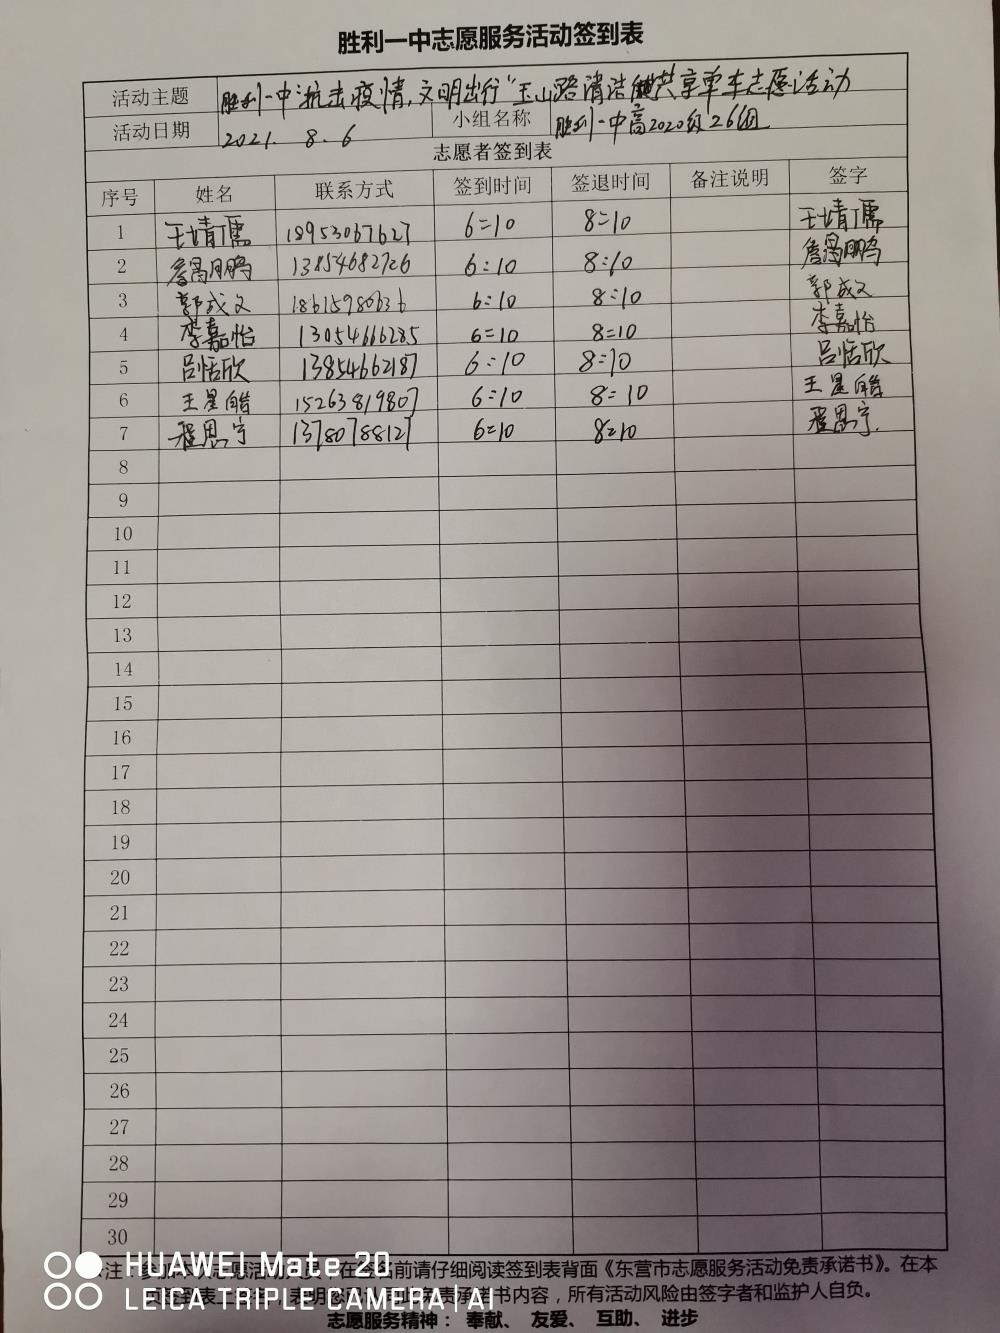 胜利一中志愿服务活动签到表
活动主题 胜利一中"抗击疫情,文明出行"玉山路清洁共享单车志愿活动
活动日期 2021. 8. 6 小组名称 胜利一中高2020级26组
志愿者签到表
序号 姓名 联系方式 签到时间 签退时间 备注说明 签字
1 王靖儒 18953067627 6:10 8:10 王靖儒
2 13854682726 6:10 8:10
3 郭成文 18615980636 6:10 8:10 郭成文
4 李嘉怡 13054666285 6:10 8:10 李嘉怡
5 吕恬欣 13854662187 6:10 8:10 吕恬欣
6 王星皓 15263819807 6:10 8:10 王星皓
7 程思宇 13780788127 6:10 8:10 程思宇
8
9
10
11
12
13
14
15
16
17
18
19
20
21
22
23
24
25
26
27
28
29
30
注:参加本次志愿活动人员,在签名前请仔细阅读签到表背面《东营市志愿服务活动免责承诺书》。在本
书内容,所有活动风险由签字者和监护人自负。
志愿服务精神: 奉献、 友爱、 互助、 进步
HUAWEI Mate 20
LEICA TRIPLE CAMERA | AI